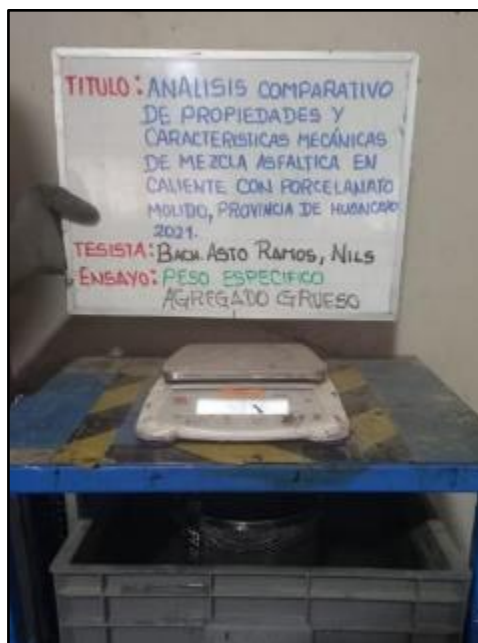 TITULO: ANÁLISIS COMPARATIVO
DE PROPIEDADES Y
CARACTERISTICAS MECÁNICAS
DE MEZCLA ASFALTICA EN
CALIENTE CON PORCELANATO
MOLIDO, PROVINCIA DE HUANCAYO
2021.
TESISTA: BACH. ASTO RAMOS, NILS
ENSAYO: PESO ESPECIFICO
AGREGADO GRUESO